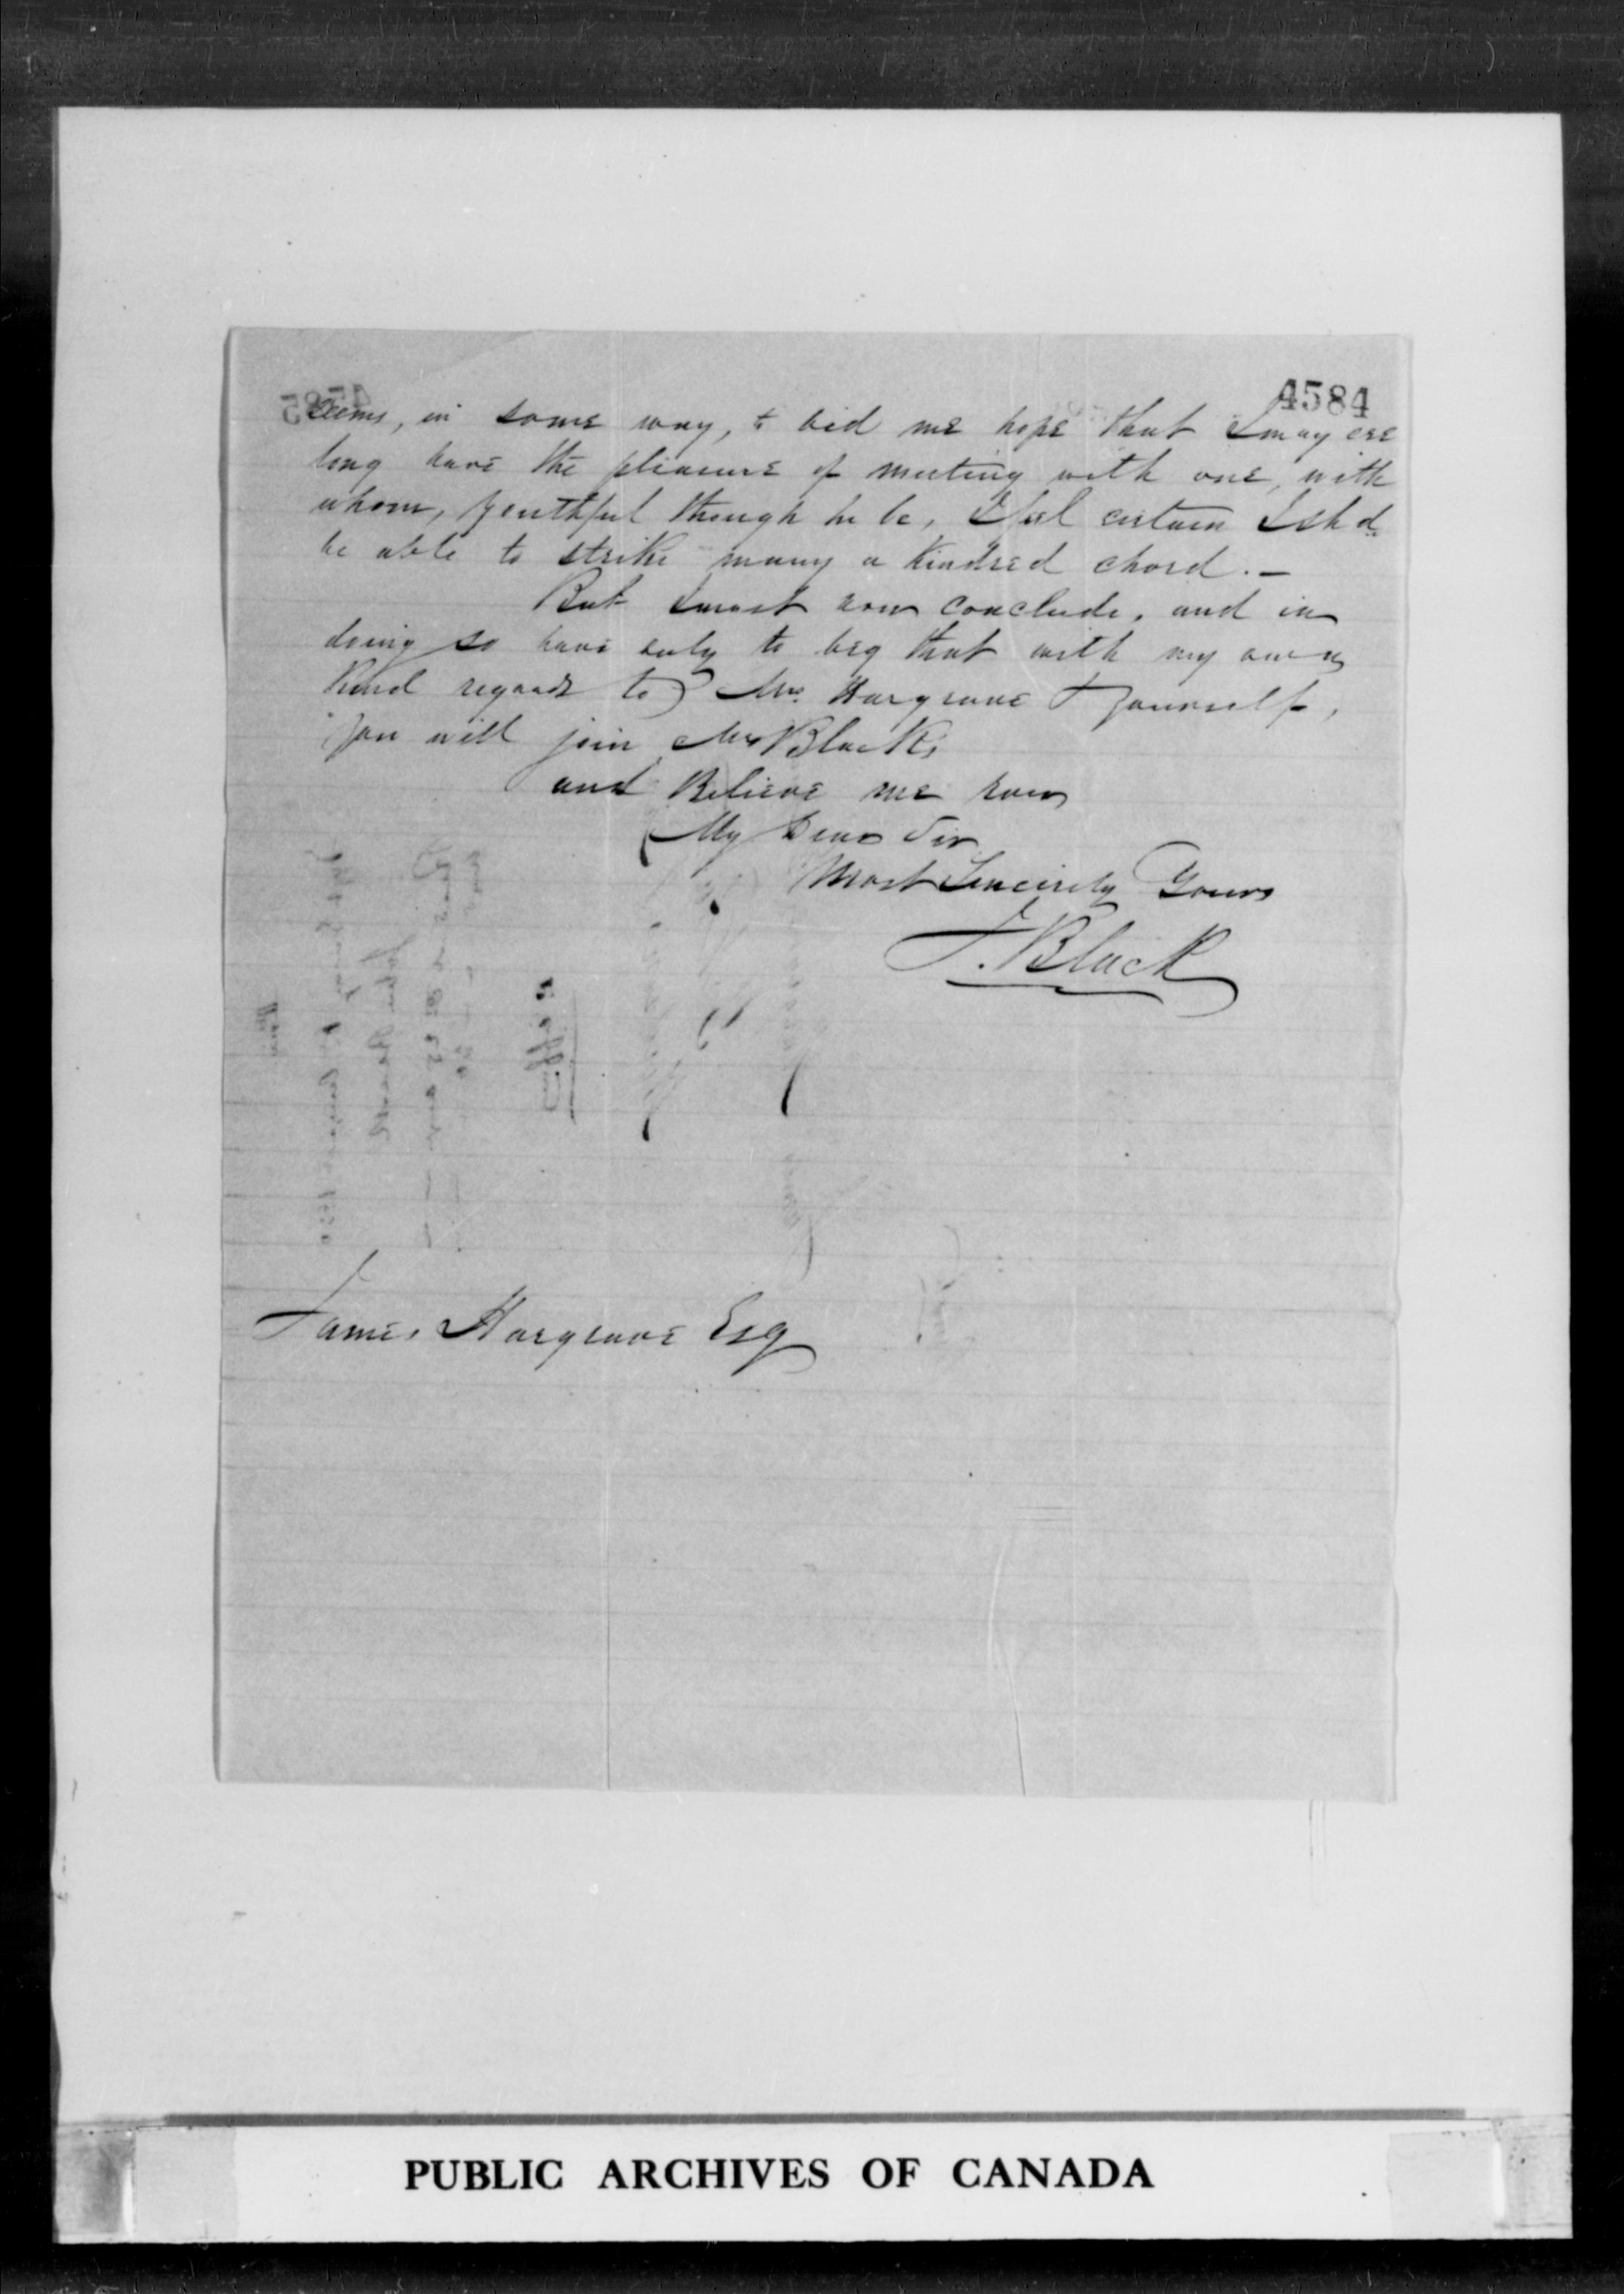 4584
seems, in some way, to bid me hope that I may ere
long have the pleasure of meeting with one, with
whom, youthful though he be, I feel certain I shd
be able to strike many a kindred chord. –
But I must now conclude, and in
doing so have only to beg that with my own
kind regards to Mrs. Hargrave & yourself,
you will join Mrs Black's
and Believe me ever
My Dear Sir
Most Sincerely Yours
J. Black
James Hargrave Esq
PUBLIC ARCHIVES OF CANADA